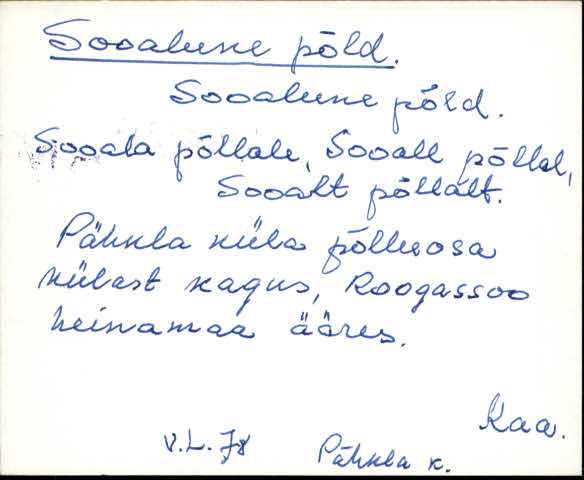 Sooalune põld.
Sooalune põld.
Sooala põllale, Sooall põllal,
Sooalt põllalt.
Pähkla küla põlluosa
külast kagus, Roogassoo
heinamaa ääres.
Kaa.
V.L. 78 Pähkla k.